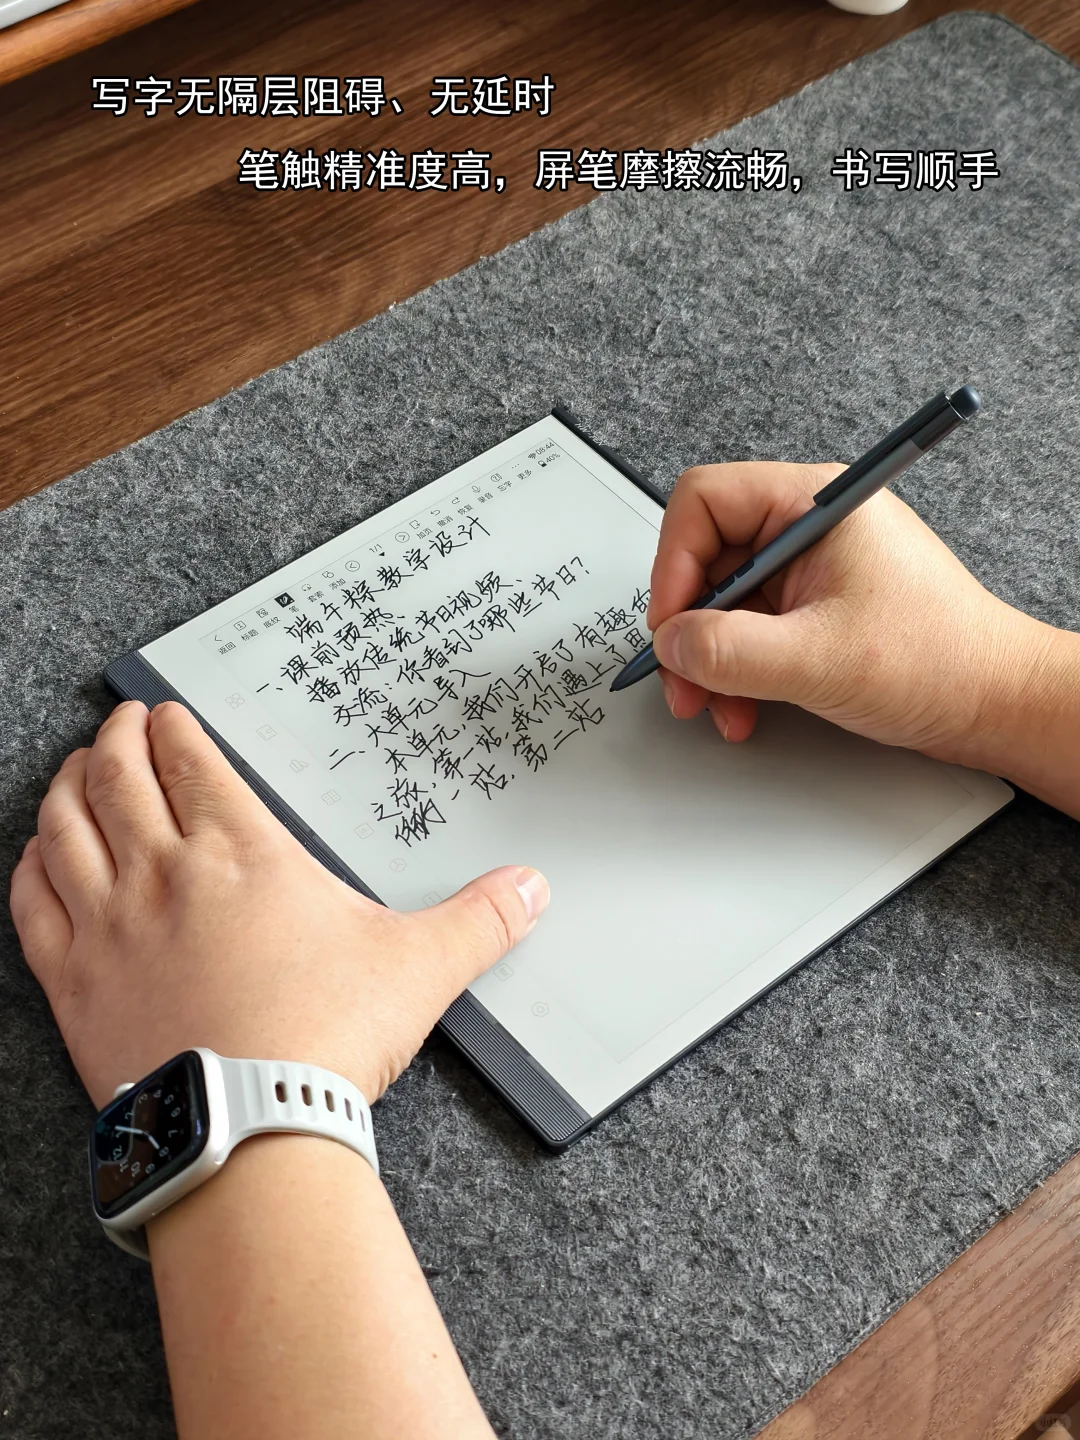 写字无隔层阻碍、无延时
笔触精准度高，屏笔摩擦流畅，书写顺手
08:44
40%
返回 标题 底纹 笔 套索 添加 1/1 加页 撤消 恢复 录音 忘字 更多
端午粽教学设计
一、课前预热、
播放传统节日视频、
交流：你看到了哪些节日？
二、大单元导入
本单元，我们开启了有趣的
之旅，第一站，我们遇上了
一站，第二站